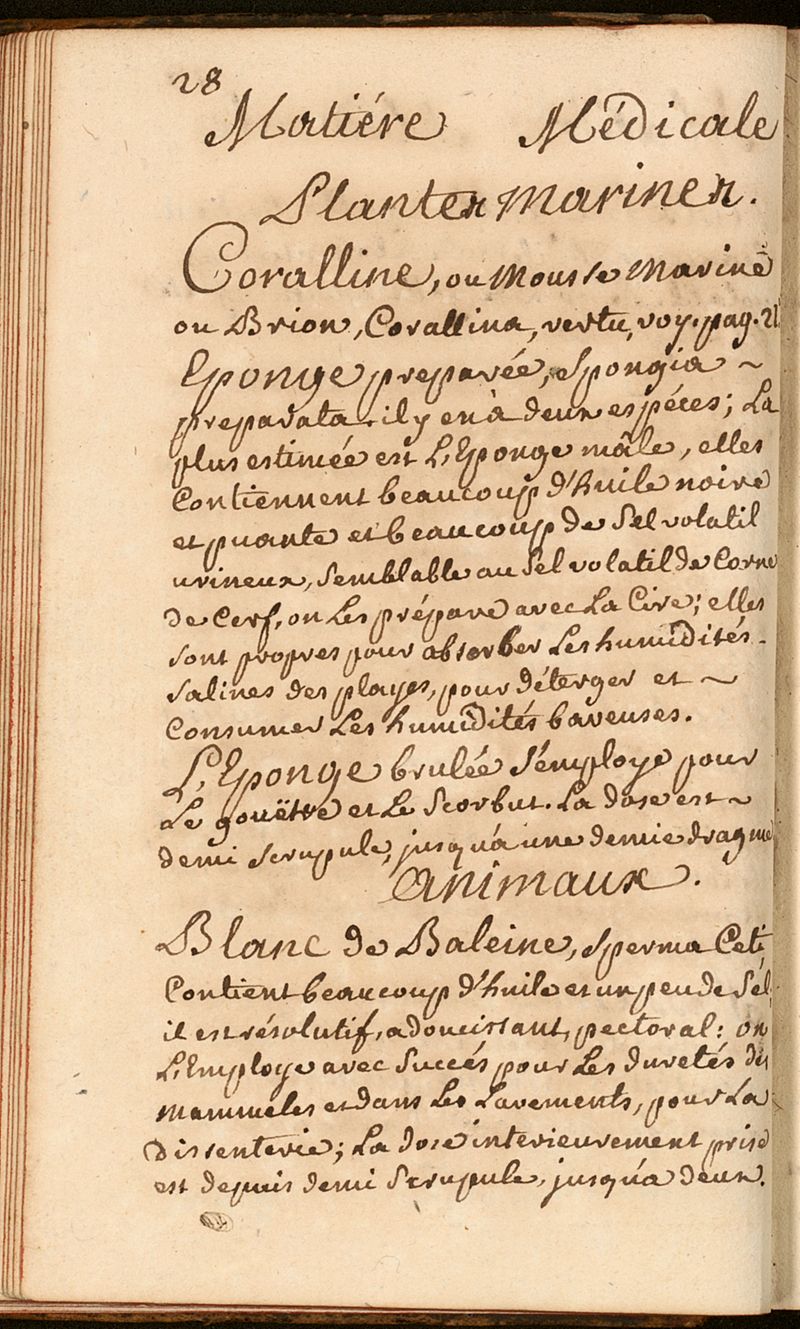 28
Matiére Médicale
Plantes marines.
Coralline, ou Mousse marine
ou Brion, Corallina, vertu, voy. pag. 21
Eponge preparée, Spongia ~
preparata. il y en à deux espéces; La
plus estimée est L'Eponge mâle, elles
Contiennent beaucoup d'huile noire
et puante et beaucoup de Sel volatil
urineux, Semblable au Sel volatil de Corne
de Cerf, on Les prépare avec La Cire; elles
sont propres pour absorber Les humidités
salines des playes, pour déterger et ~
Consumer Les humidités baveuses.
L'Eponge brulée s'employe pour
Le gouëtre et Le Scorbut. La dose est ~
demi scrupule, jusqu'a une demie dragme
animaux.
Blanc de Baleine, Sperma Ceti,
Contient beaucoup d'huile et un peu de Sel,
il est résolutif, adoucissant, pectoral: on
L'Employe avec Succés pour Les duretés des
mammeles et dans Les Lavements, pour La
dissenterie; La dose interieurement prise
est depuis demi Scrupule, jusqu'a deux.